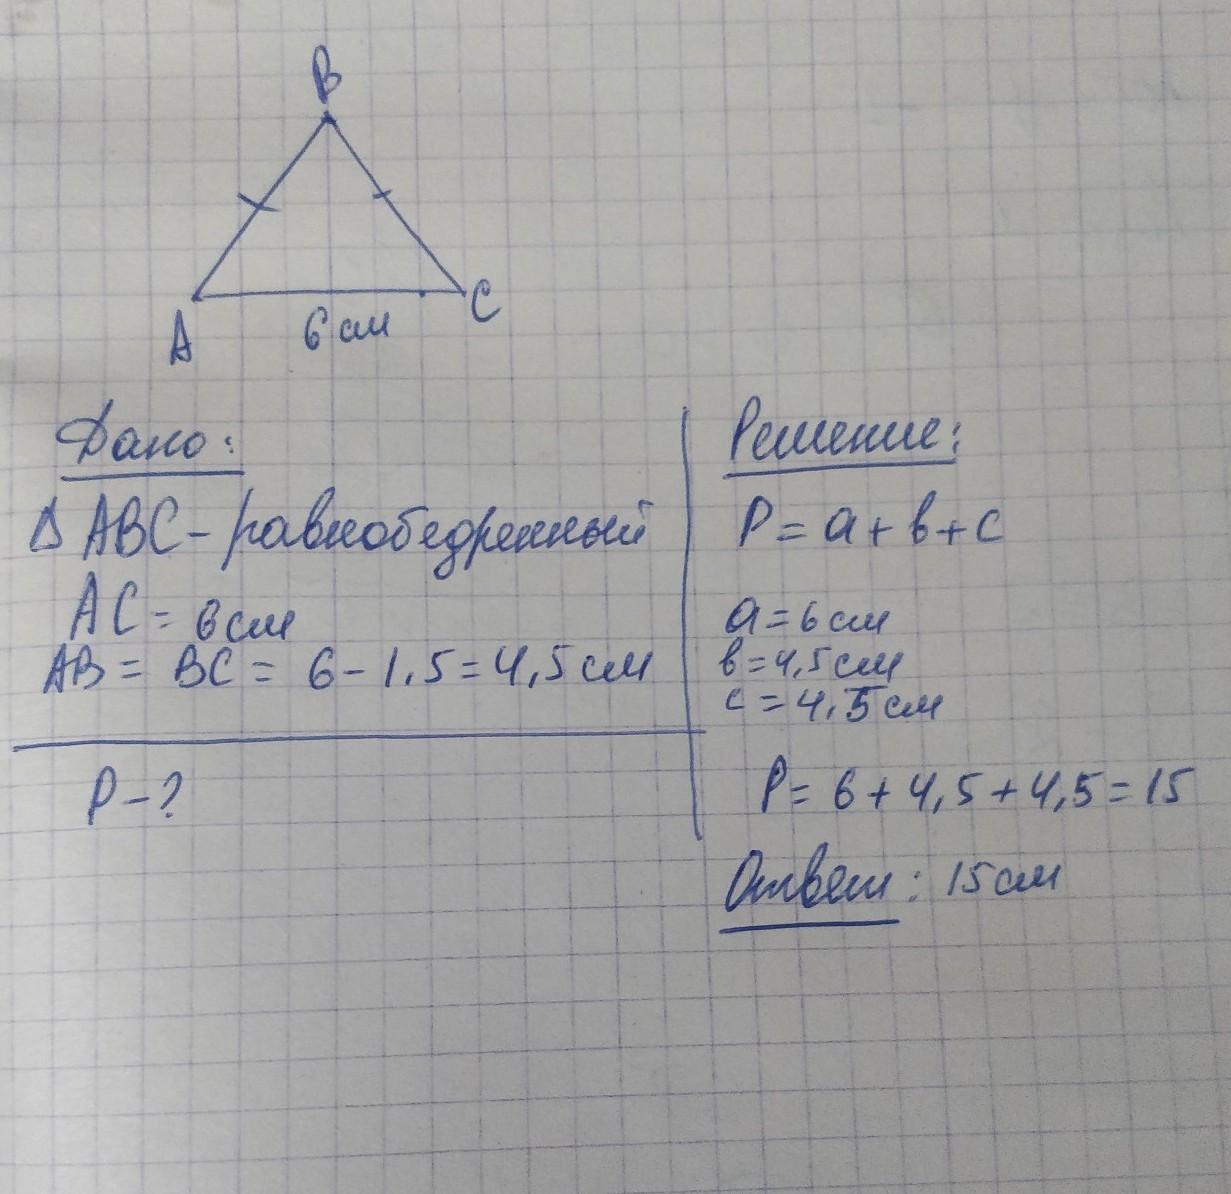 B
A
6 см
C
Дано:
Δ ABC - равнобедренный
AC = 6 см
AB = BC = 6 - 1,5 = 4,5 см
P - ?
Решение:
P = a + b + c
a = 6 см
b = 4,5 см
c = 4,5 см
P = 6 + 4,5 + 4,5 = 15
Ответ: 15 см